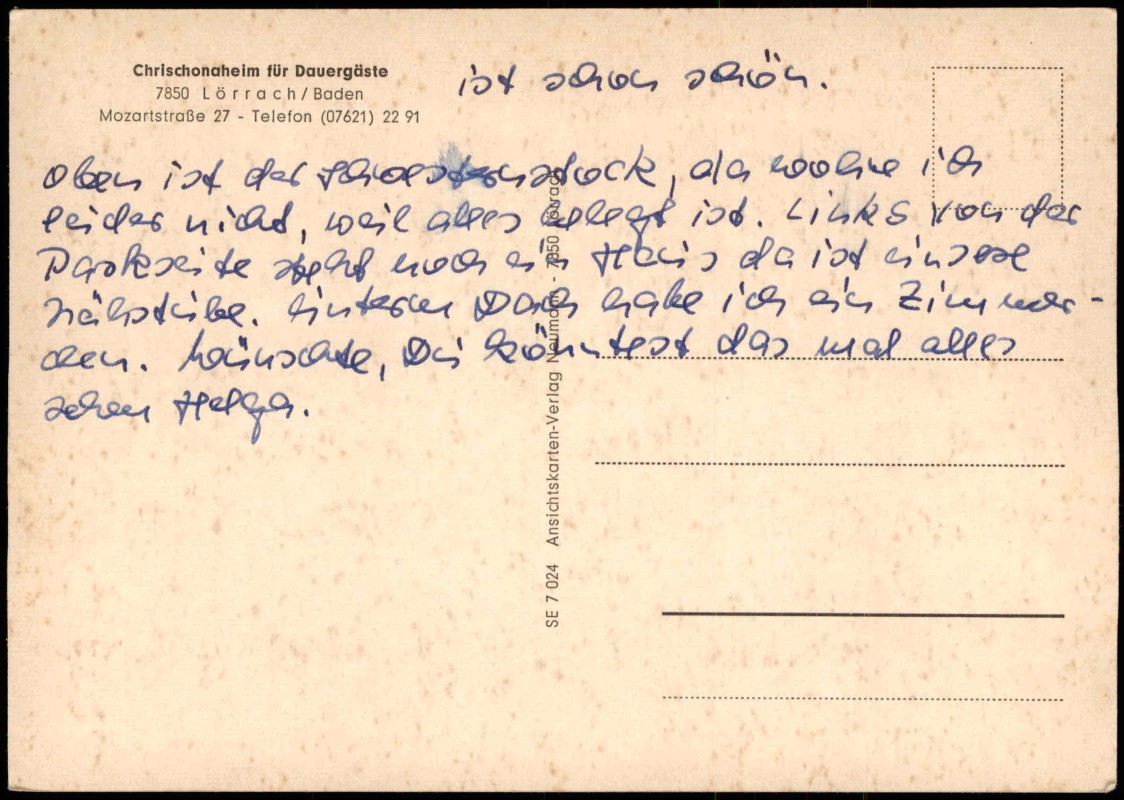 Chrischonaheim für Dauergäste
7850 Lörrach/Baden
Mozartstraße 27 - Telefon (07621) 22 91
ist schon schön.
oben ist der Schwesternstock, da wohne ich
leider nicht, weil alles belegt ist. Links von der
Parkseite steht noch ein Haus da ist unsere
Nähstube. Hinterm Dach habe ich ein Zimmer-
chen. Wünschte, Du könntest das mal alles
sehen Helga.
SE 7 024 Ansichtskarten-Verlag Neumann - 7850 Lörrach